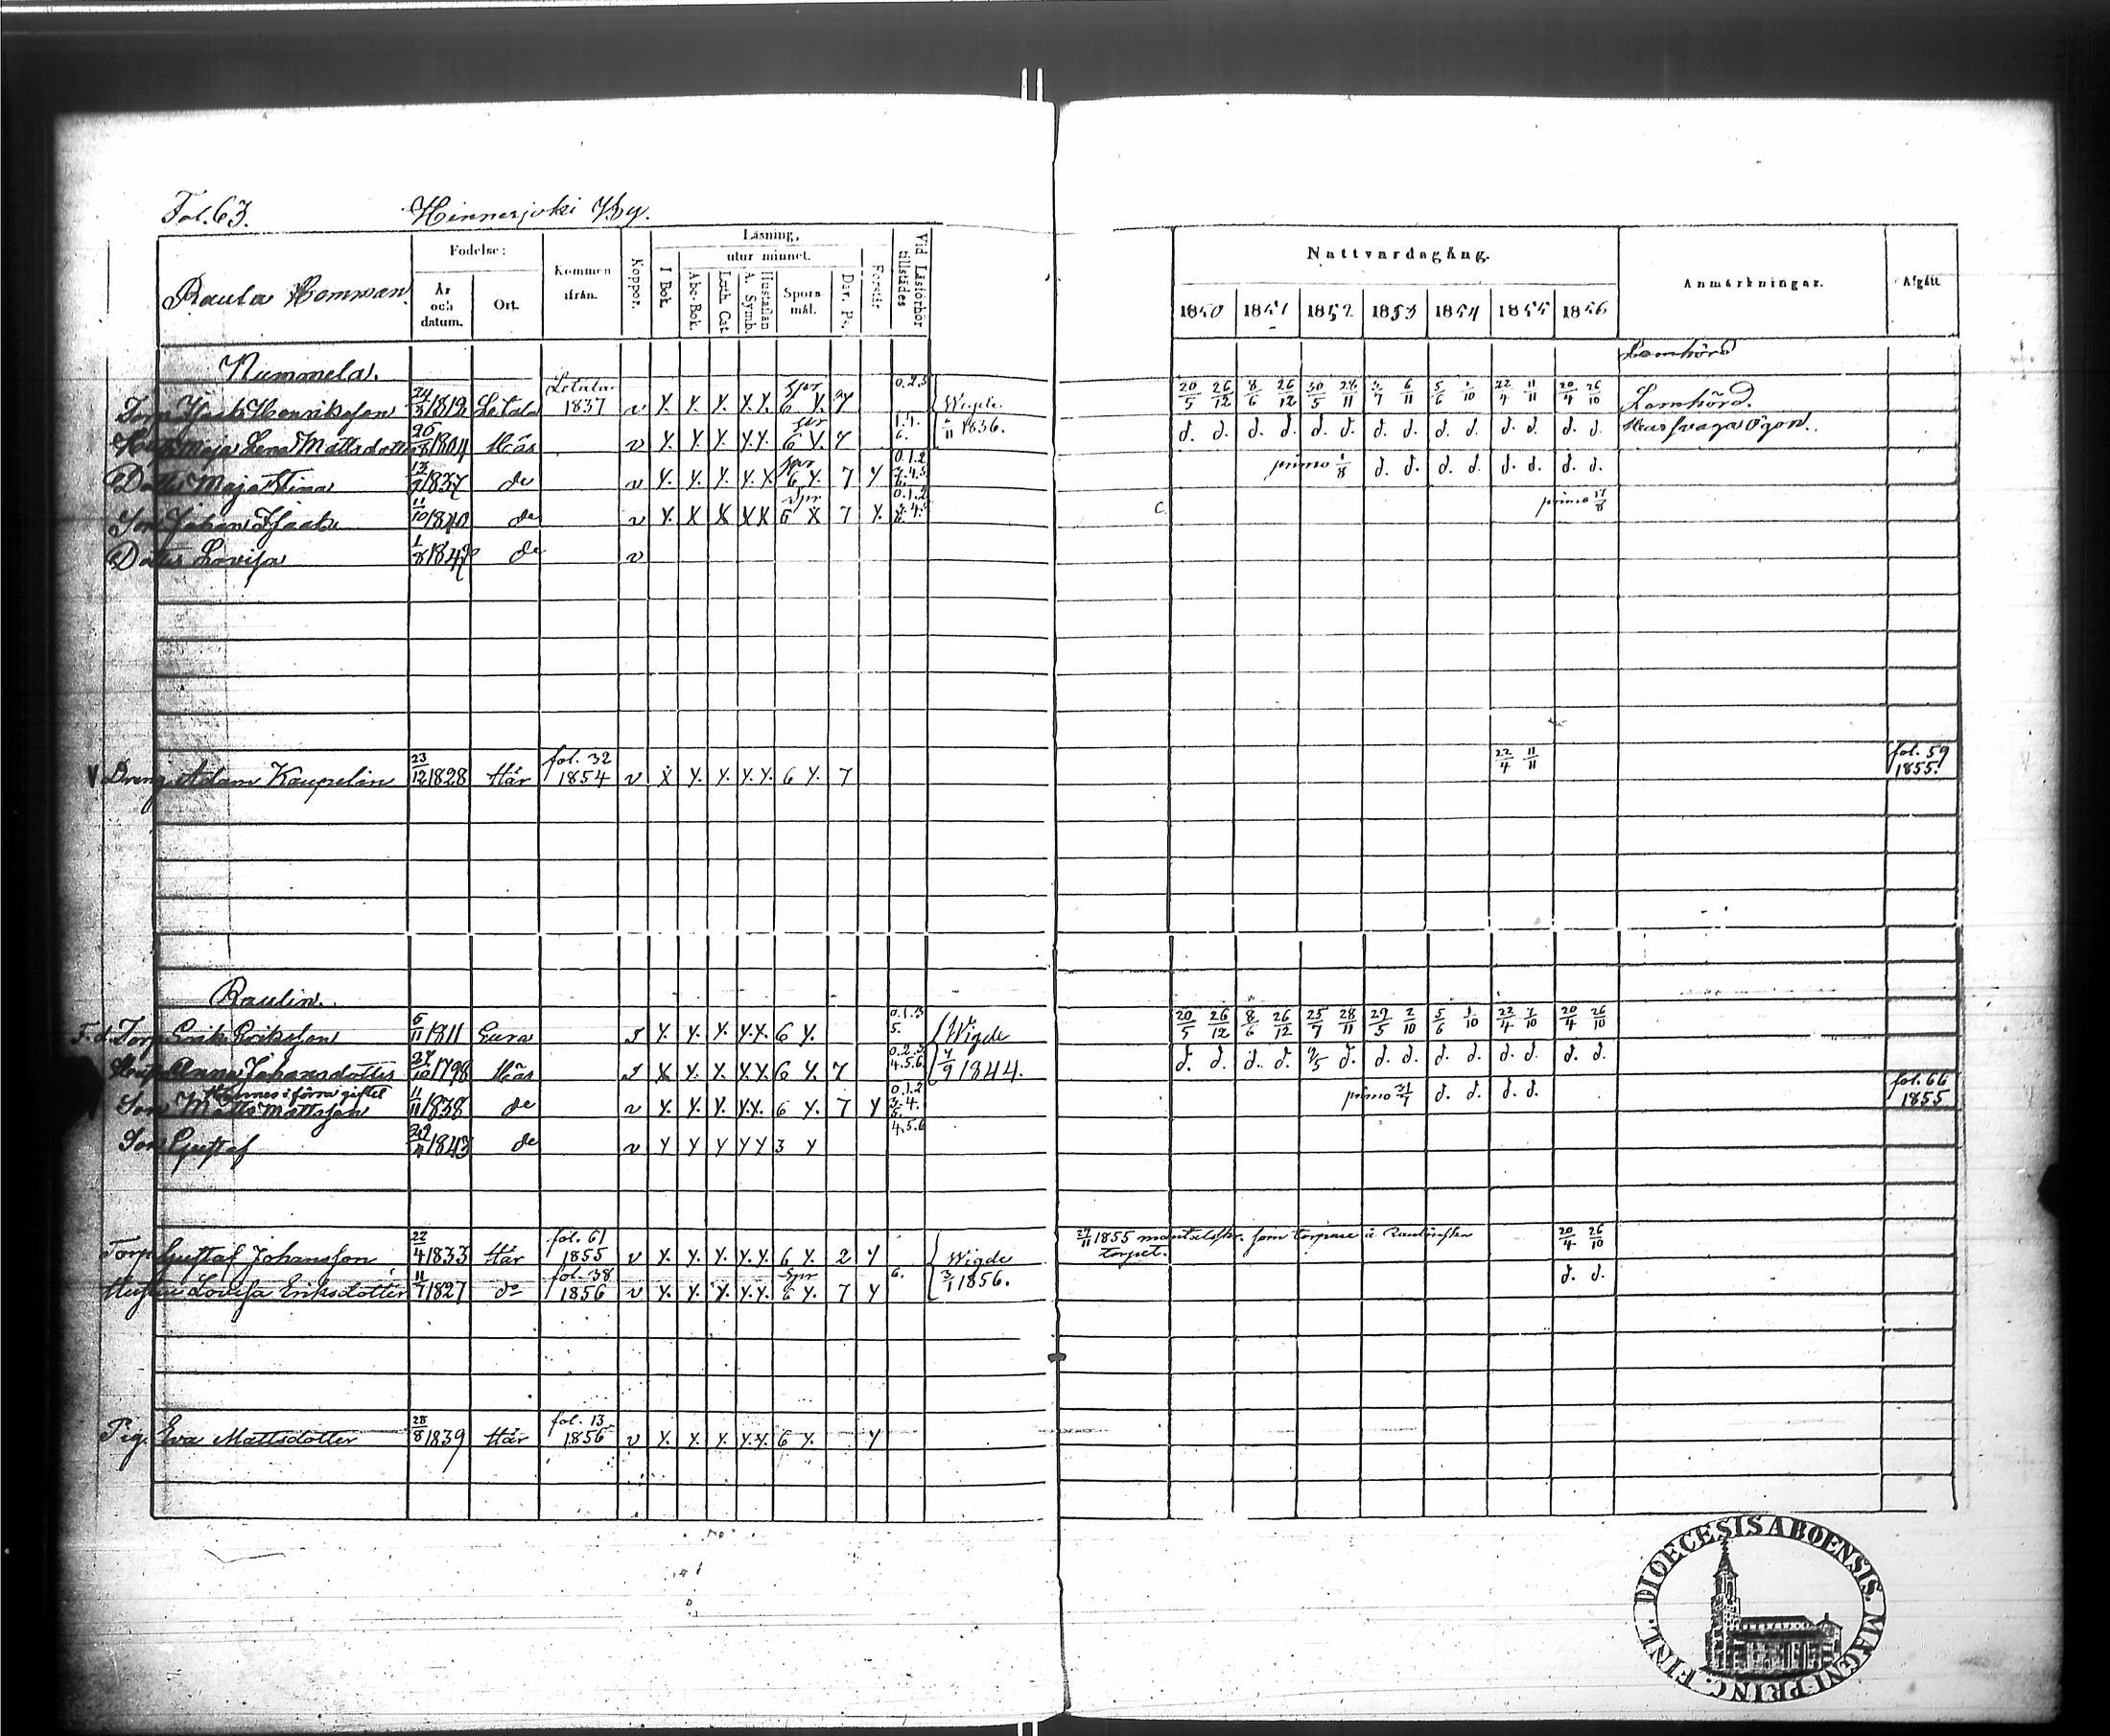 Fol. 63. Hinnerjoki By.
Raula Homman.
Födelse:
År och datum.
Ort.
Kommen ifrån.
Koppor.
Läsning,
utur minnet.
I Bok.
Abc-Bok.
Luth. Cat.
Hustaflan A. Symb.
Spörs mål.
Dav. Ps.
Förstår
Vid Läsförhör tillstädes
Nattvardsgång.
1850 1851 1852 1853 1854 1855 1856
Anmärkningar.
Afgått.
Nummela.
Lomhörd
Torp. Isaak Henriksson 24/3 1812 Letala Letala 1837 v Y. Y. Y. Y.Y. spr 6 Y. 7 0.2.3 Wigde 20/5 26/12 8/6 26/12 30/5 28/11 3/7 6/11 5/6 1/10 22/4 11/11 20/4 26/10 Lomhörd.
Hust. Maja Lena Mattsdotter 26/8 1804 Här v Y. Y. Y. Y.Y. spr 6 Y. 7 6. 1836. d. d. d. d. d. d. d. d. d. d. d. d. d. d. Har svaga ögon.
Dotter Maja Stina 13/7 1837 do v Y. Y. Y. Y.Y. spr 6 Y. 7 Y 0.1.2 primo 1/8 d. d. d. d. d. d. d. d.
Son Johan Isaak 11/10 1840 do v Y. X X XX spr 6 X 7 Y. 0.1.2 C. primo 17/8
Dotter Lovisa 1/8 1847 do v
V Dreng Adam Kaupelin 23/12 1828 Här fol. 32 1854 v X Y. Y. Y.Y. 6 Y. 7 22/4 11/11 fol. 59 1855.
Raulin.
F.d. Torp. Erik Eriksson 6/11 1811 Eura Y. Y. Y. Y.Y. 6 Y. 0.1.3 5. Wigde 20/5 26/12 8/6 26/12 25/7 28/11 29/5 2/10 5/6 1/10 22/4 7/10 20/4 26/10
Hust. Anna Johansdotter 27/10 1798 Här X Y. Y. Y.Y. 6 Y. 7 0.2.3 4.5.6 4/9 1844. d. d. d. d. 9/5 d. d. d. d. d. d. d. d. d.
Hennes i förra giftet
Son Matts Mattsson 11/11 1838 do v Y. Y. Y. Y.Y. 6 Y. 7 Y 0.1.2 3.4. primo 31/7 d. d. d. d. fol. 66 1855
Son Gustaf 1843 do v Y Y Y Y Y 3 Y 4.5.6
Torp. Gustaf Johansson 22/4 1833 Här fol. 61 1855 v Y. Y. Y. Y.Y. 6 Y. 2 Y Wigde 27/11 1855 som torpare å 20/4 26/10
torpet.
Hustru Lovisa Eriksdotter 11/7 1827 do fol. 38 1856 v Y. Y. Y. Y.Y. spr 6 Y. 7 Y 6. 3/1 1856. d. d.
Pig. Eva Mattsdotter 28/8 1839 Här fol. 13 1856 v Y. Y. Y. Y.Y. 6 Y. Y
FINL. DIOECESIS ABOENSIS. MAGNI PRINC.